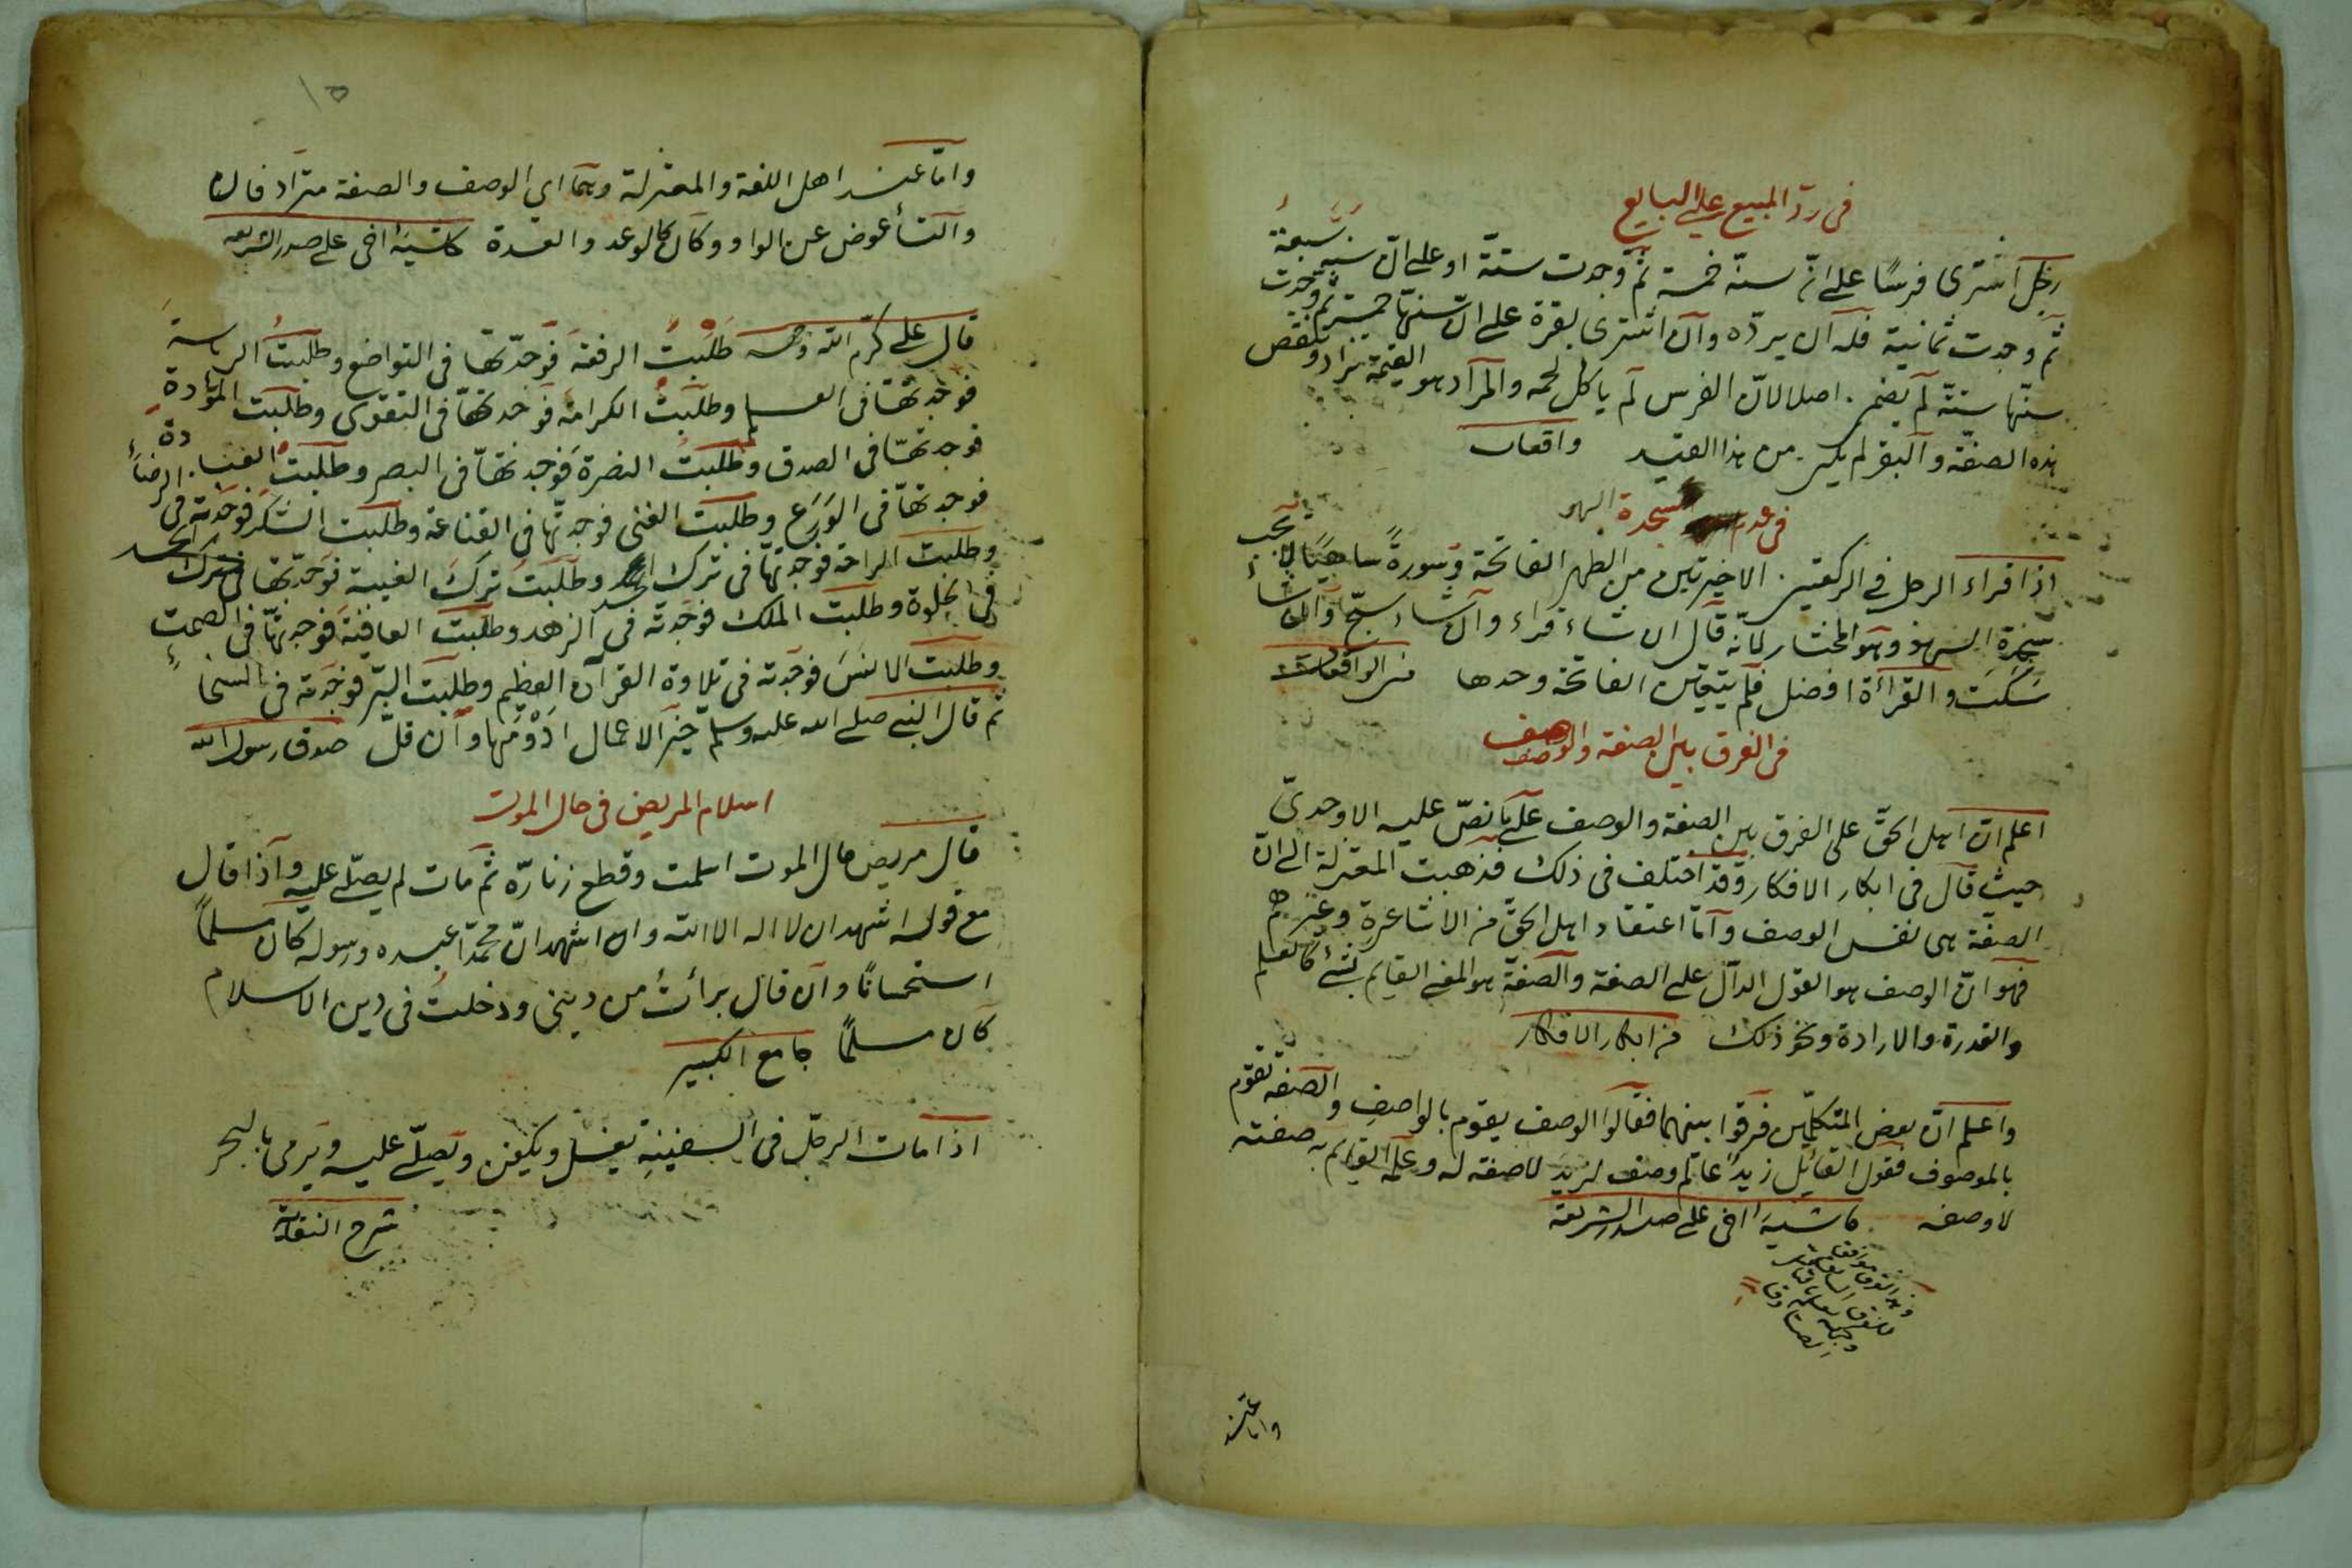 في ردّ المبيع علي البايع
رجل اشترى فرسًا على انّ سنّه خمسة ثمّ وجدت ستّة او على انّ سنه سبعة
ثمّ وجدت ثمانية فله ان يردّه وان اشترى بقرة على انّ سنّها خمسة ثم وجدت
سنّها ستّة لم يضر اصلا لانّ الفرس لم ياكل لحمه والمراد هو القيمة تزاد وتنقص
هذه الصفة والبقر لم يكن من هذا القبيد واقعات
في عدم سجدة السهو
اذا قراء الرجل في الركعتين الاخيرتين من الظهر الفاتحة وسورةً ساهيًا لا تجب
سجدة السهو وهو المختار لانّه قال ان شاء قراء وان شاء سبّح وان شاء
سكت والقراءة افضل فلم يتعيّن الفاتحة وحدها من الواقعات
في الفرق بين الصفة والوصف
اعلم انّ اهل الحقّ على الفرق بين الصفة والوصف على ما نصّ عليه الاوحديّ
حيث قال في ابكار الافكار وقد اختلف في ذلك فذهبت المعتزلة الى انّ
الصفة هي نفس الوصف وامّا اعتقاد اهل الحقّ من الاشاعرة وغيرهم
فهو انّ الوصف هو القول الدالّ على الصفة والصفة هو المعنى القايم بشئ كالعلم
والقدرة والارادة ونحو ذلك من ابكار الافكار
واعلم انّ بعض المتكلّمين فرقوا بينهما فقالوا الوصف يقوم بالواصف والصفة تقوم
بالموصوف فقول القائل زيدٌ عالم وصف لزيد لا صفة له وعلمه القايم به صفته
لا وصفه حاشية اخى على صدر الشريعة
واما عند
١٥
وامّا عند اهل اللغة والمعتزلة وهما اي الوصف والصفة مترادفان
والتاء عوض عن الواو وكان كالوعد والعدة حاشية اخى على صدر الشريعه
قال على كرّم الله وجهه طلبت الرفعة فوجدتها في التواضع وطلبت الرياسة
فوجدتها في العلم وطلبت الكرامة فوجدتها في التقوى وطلبت المودة
فوجدتها في الصدق وطلبت النصرة فوجدتها في الصبر وطلبت العبادة
فوجدتها في الورع وطلبت الغنى فوجدتها في القناعة وطلبت الشكر فوجدته في الرضاء
وطلبت الراحة فوجدتها في ترك الحسد وطلبت ترك الغيبة فوجدتها في ترك الحسد
في الخلوة وطلبت الملك فوجدته في الزهد وطلبت العافية فوجدتها في الصمت
وطلبت الانس فوجدته في تلاوة القرآن العظيم وطلبت البرّ فوجدته في السخاء
ثم قال النبي صلى الله عليه وسلم خير الاعمال ادومها وان قلّ صدق رسول الله
اسلام المريض في حال الموت
قال مريض حال الموت اسلمت وقطع زنارّه ثمّ مات لم يصلّى عليه واذا قال
مع قوله اشهد ان لا اله الا الله وان اشهد انّ محمّدًا عبده ورسوله كان مسلمًا
استحسانًا وان قال برأتُ من ديني ودخلتُ في دين الاسلام
كان مسلمًا جامع الكبير
اذا مات الرجل في السفينة يغسل ويكفن ويصلّى عليه ويرمى بالبحر
شرح النقاية